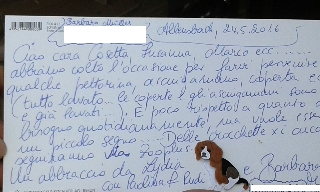 Barbara
Allensbach, 24.5.2016
Ciao cara Cosetta, Susanna, Marco ecc......
abbiamo colto l'occasione per farvi pervenire
qualche pettorina, asciugamano, coperta e
(tutto lavato... le coperte e gli asciugamani sono
e già lavati...). È poco rispetto a quanto
bisogno quotidianamente, ma vuole esse
un piccolo segno... Delle crocchette xi cucc
seguiranno zooplus
Un abbraccio da Lydia e Barbara
con Paolina + Rudi